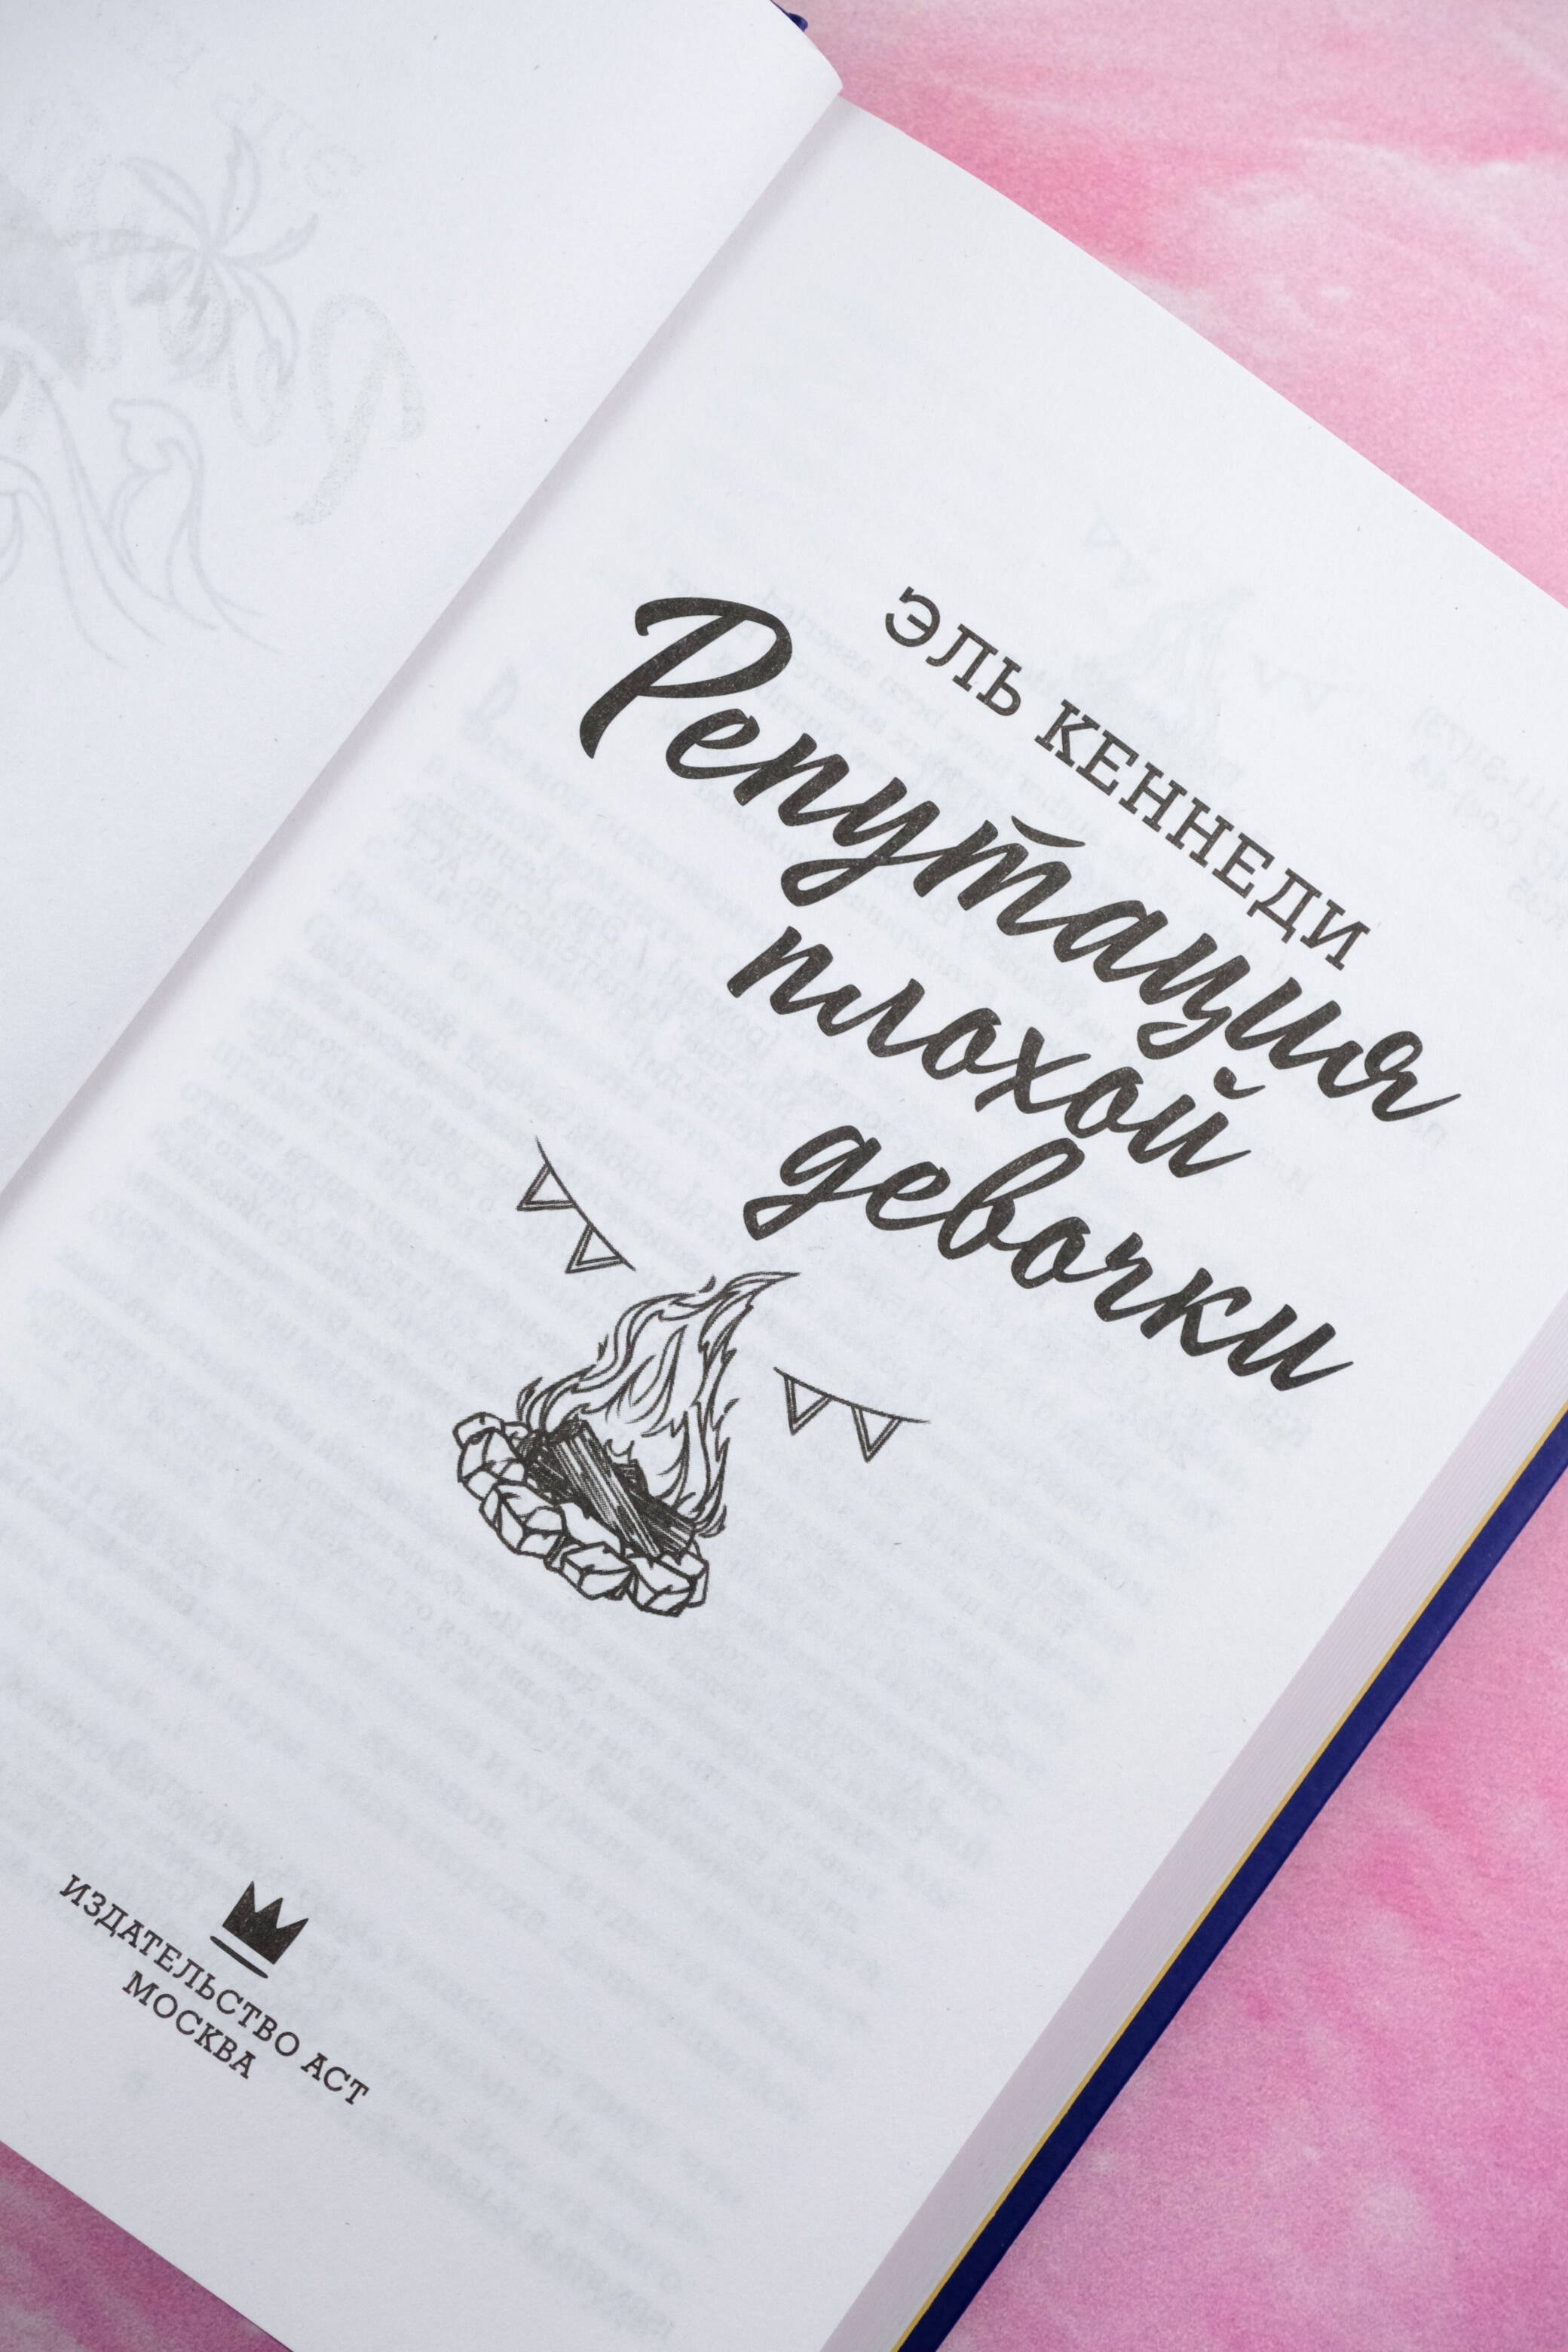 ЭЛЬ КЕННЕДИ
Репутация
плохой
девочки
ИЗДАТЕЛЬСТВО АСТ
МОСКВА